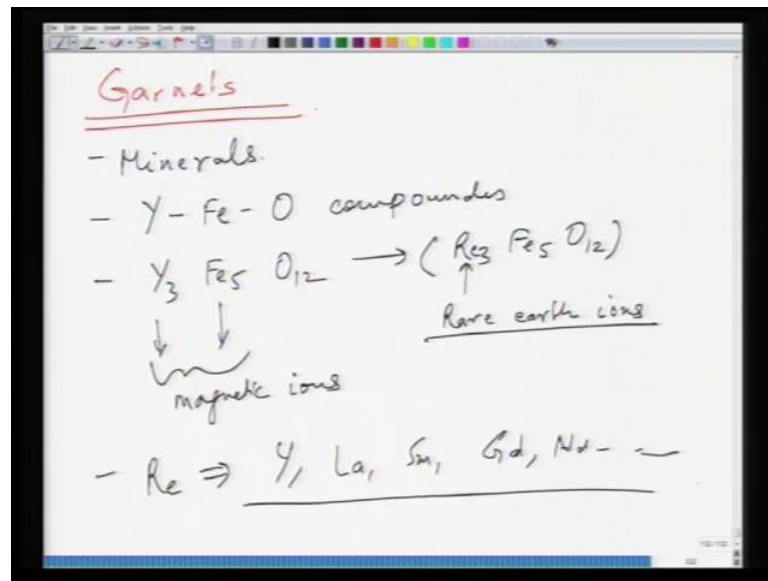 Garnets
- Minerals.
- Y-Fe-O compoundes
- Y3 Fe5 O12 → (Re3 Fe5 O12)
Rare earth ions
magnetic ions
- Re ⇒ Y, La, Sm, Gd, Nd - -